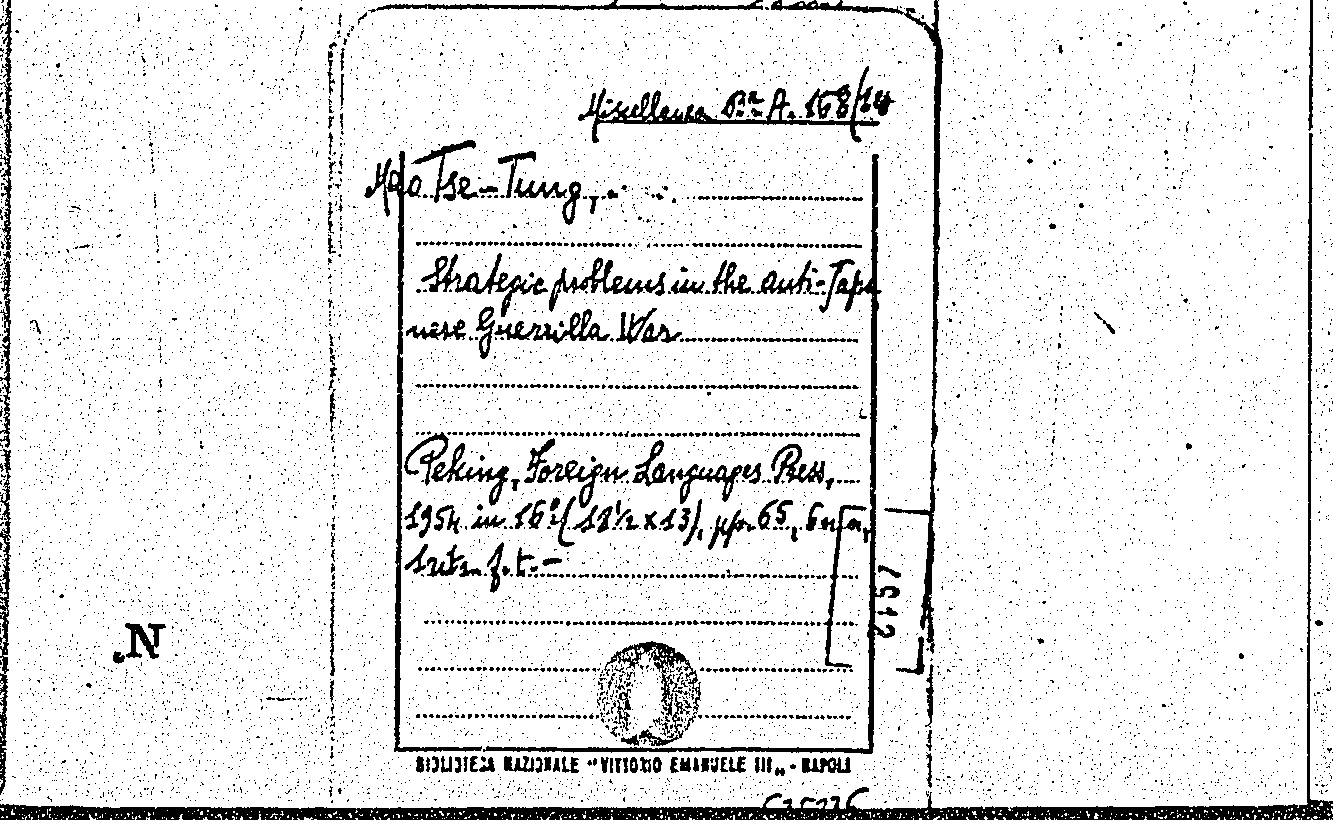 Miscellanea Bna A. 168/14
Mao Tse-Tung,
Strategic problems in the anti-Japa
nese Guerrilla War
Peking, Foreign Languages Press,
1954 in 16º (18½ x 13), pp. 65,
7512
N.
BIBLIOTECA NAZIONALE "VITTORIO EMANUELE III„ - NAPOLI